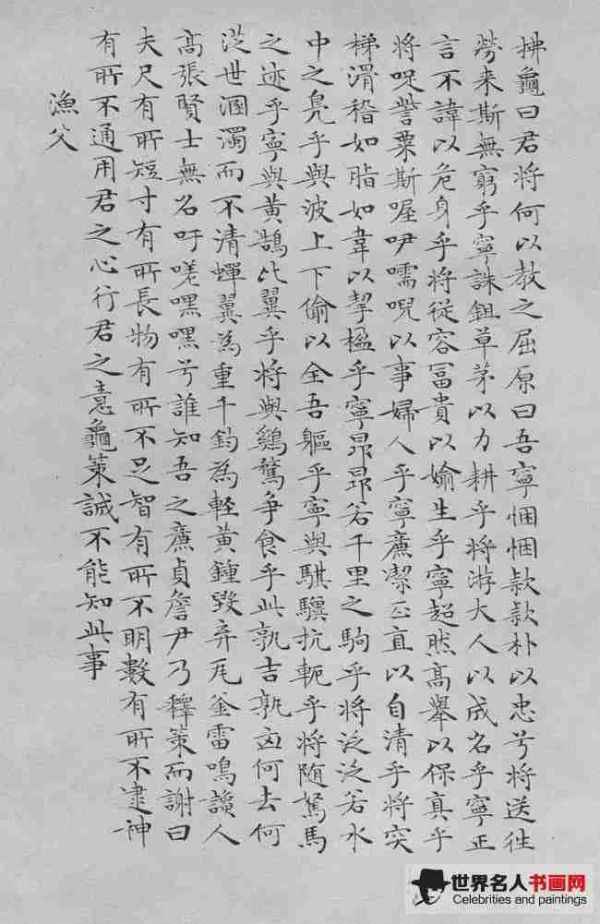 拂龜曰君將何以教之屈原曰吾寧悃悃款款朴以忠兮將送往
勞来斯無窮乎寧誅鉏草茅以力耕乎將游大人以成名乎寧正
言不諱以危身乎將從容冨貴以媮生乎寧超然髙舉以保真乎
將哫訾粟斯喔咿嚅唲以事婦人乎寧廉潔正直以自清乎將突
梯滑稽如脂如韋以挈楹乎寧昂昂若千里之駒乎將泛泛若水
中之鳧乎與波上下偷以全吾軀乎寧與騏驥抗軛乎將随駑馬
之迹乎寧與黃鵠比翼乎將與鷄鶩争食乎此孰吉孰凶何去何
從世溷濁而不清蟬翼為重千鈞為軽黃鍾毀弃瓦釜雷鳴讒人
髙張賢士無名吁嗟嘿嘿兮誰知吾之廉貞詹尹乃釋策而謝曰
夫尺有所短寸有所長物有所不足智有所不明數有所不逮神
有所不通用君之心行君之意龜策誠不能知此事
漁父
世界名人书画网
Celebrities and paintings